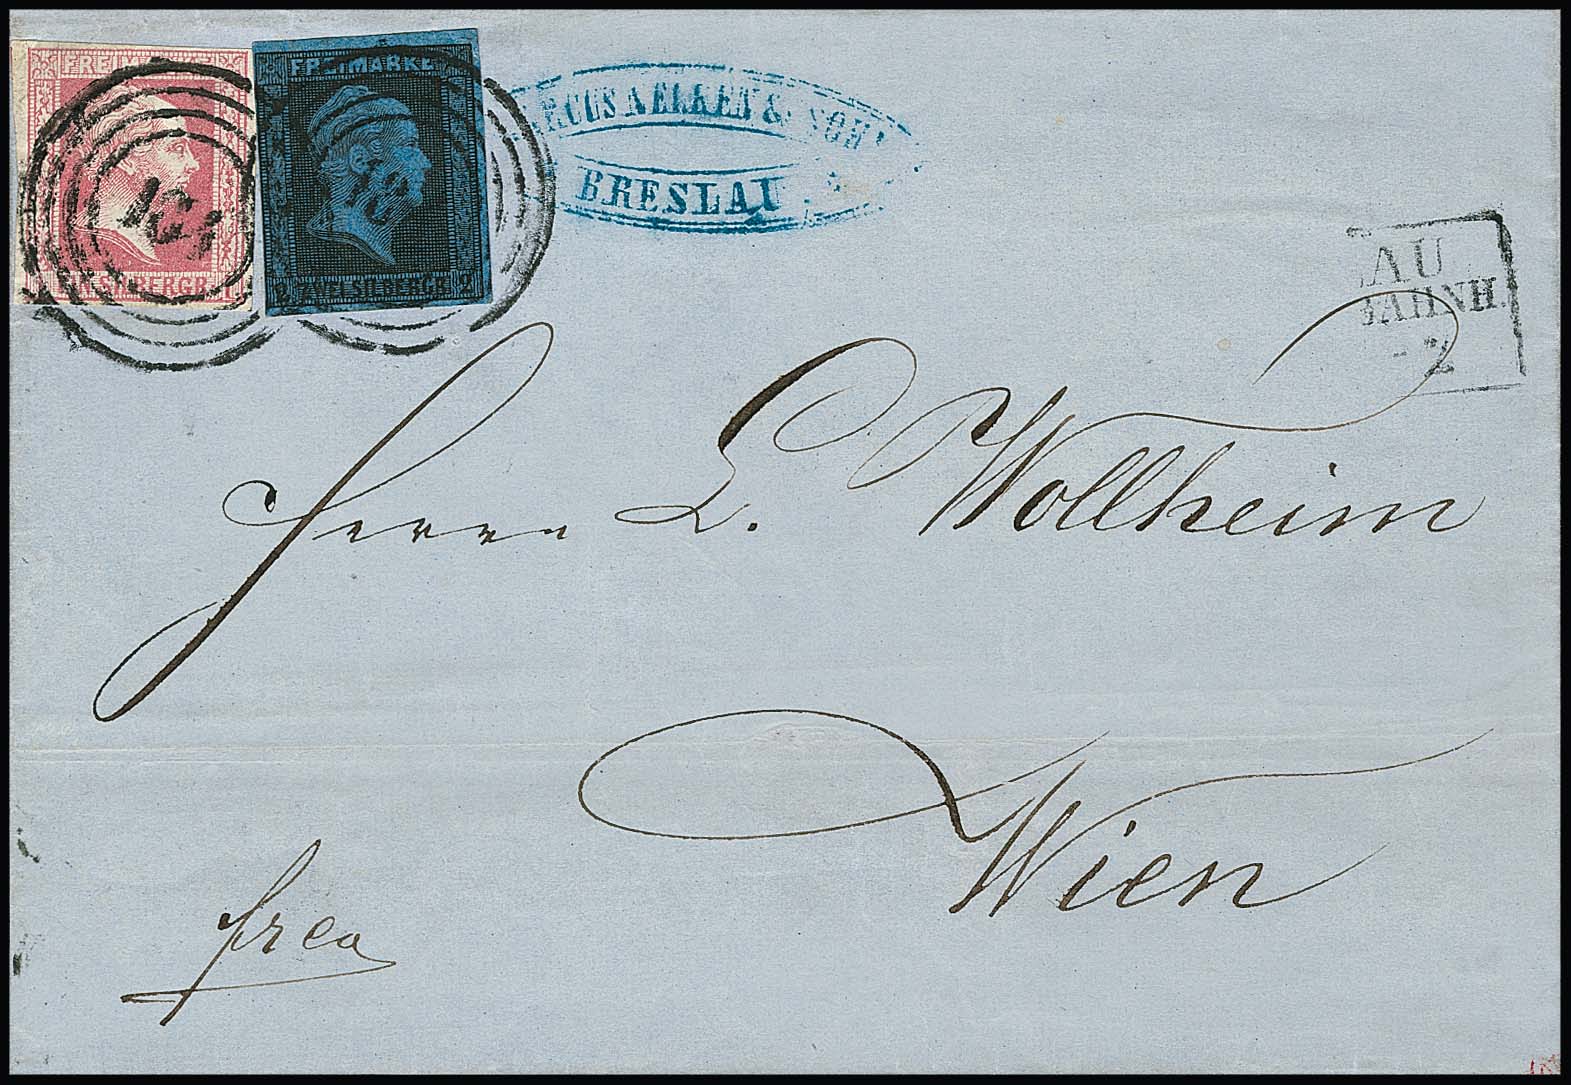 FREIMARKE
SILBERGR.
FREIMARKE
2 ZWEI SILBERGR. 2
MARCUS NELKEN & SOHN
BRESLAU
AU
BAHNH.
2
Herrn L. Wollheim
Wien
frco